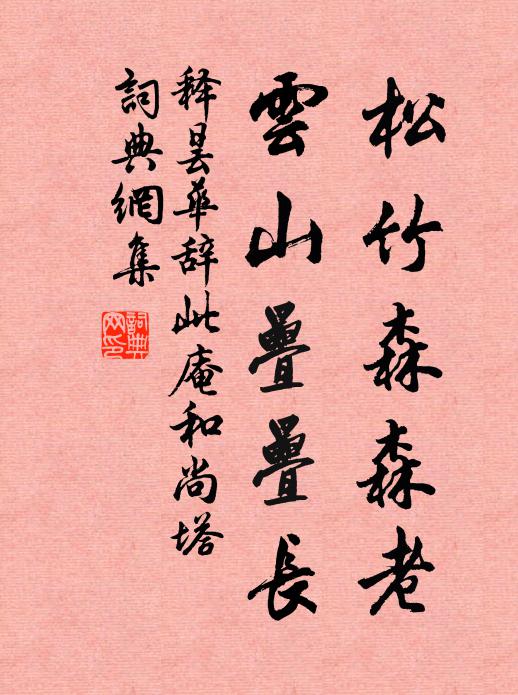 松竹森森老
雲山疊疊長
释昙華辞此庵和尚塔
詞典網集
詞典網印